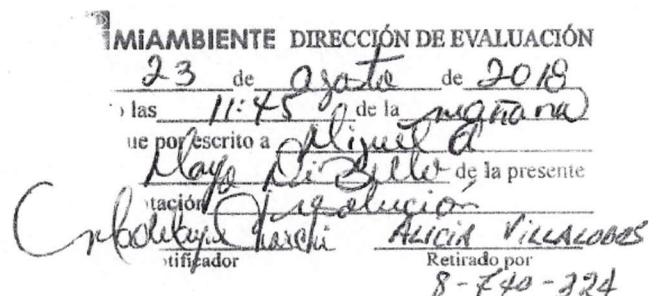 MiAMBIENTE DIRECCIÓN DE EVALUACIÓN
23 de agosto de 2018
las 11:45 de la mañana
ue por escrito a Miguel A
Mayo Di Bello de la presente
tación resolución
ALICIA VILLALOBOS
tificador Retirado por
8-740-224